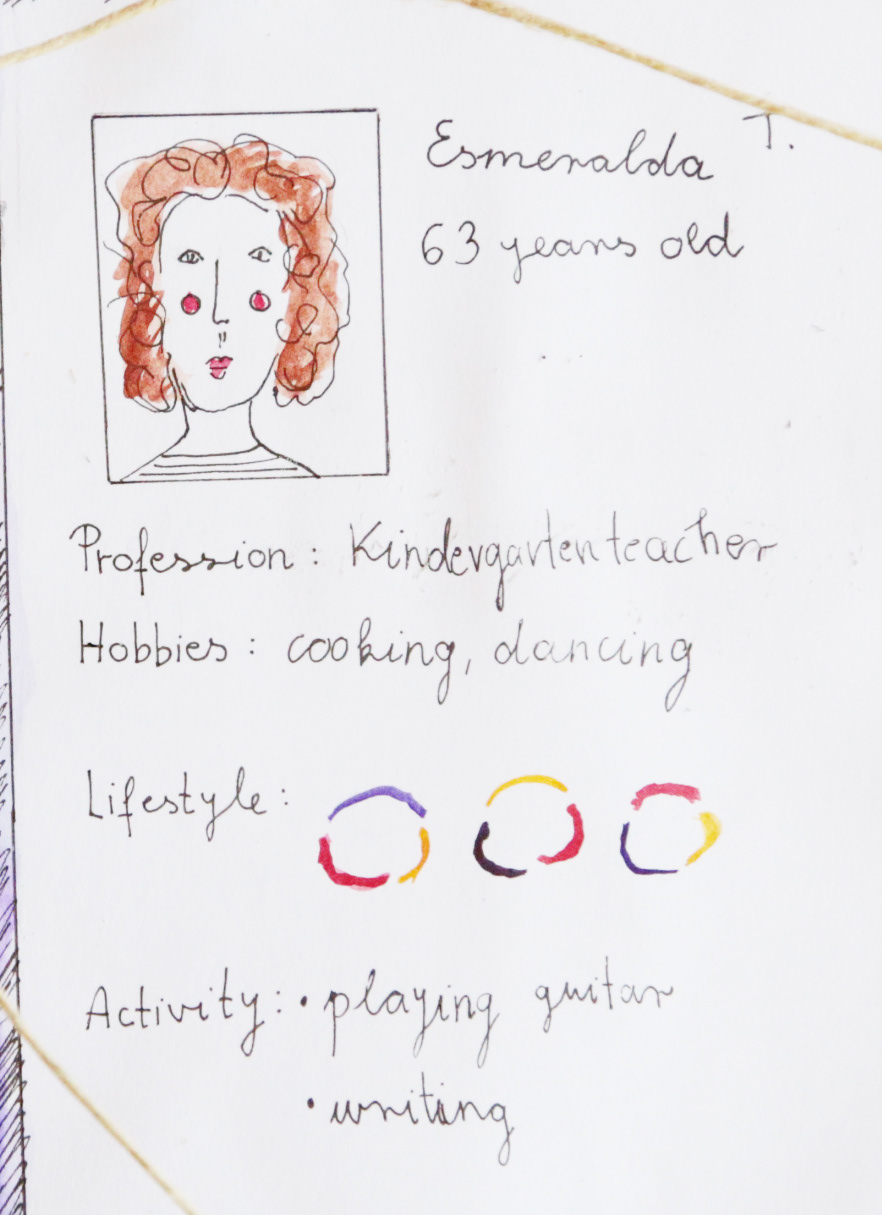 Esmeralda T.
63 years old
Profession: Kindergartenteacher
Hobbies: cooking, dancing
Lifestyle:
Activity: • playing guitar
• writing